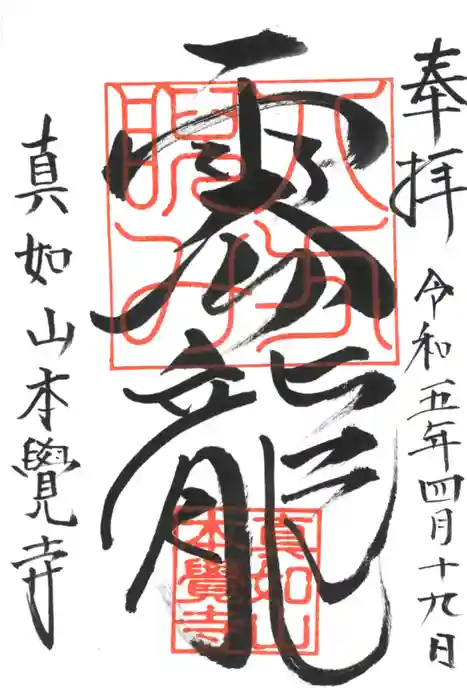 奉拝
令和五年四月十九日
雲龍
八方
睨み
真如山
本覺寺
真如山本覺寺